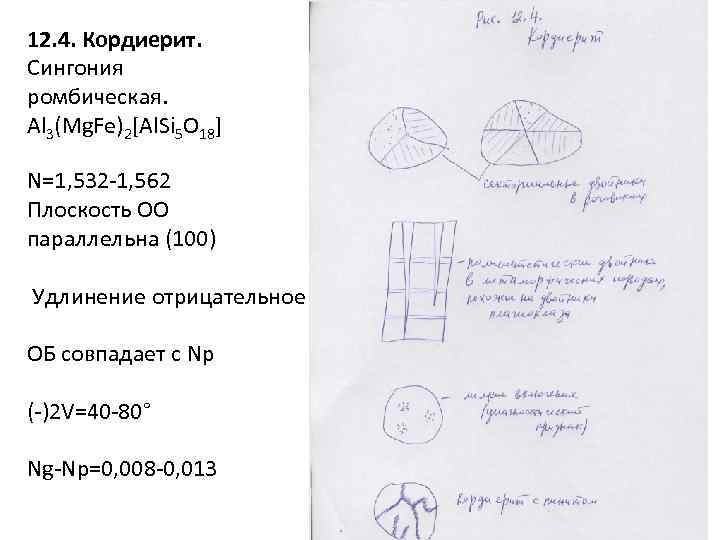 12.4. Кордиерит.
Сингония
ромбическая.
Al3(Mg.Fe)2[Al.Si5O18]
N=1,532-1,562
Плоскость ОО
параллельна (100)
Удлинение отрицательное
ОБ совпадает с Np
(-)2V=40-80°
Ng-Np=0,008-0,013
Рис. 12.4.
Кордиерит
секториальные двойники
в роговиках
полисинтетические двойники
в метаморфических породах,
похожи на двойники
плагиоклаза
мелкие включения
(диагностический
признак)
кордиерит с пинитом